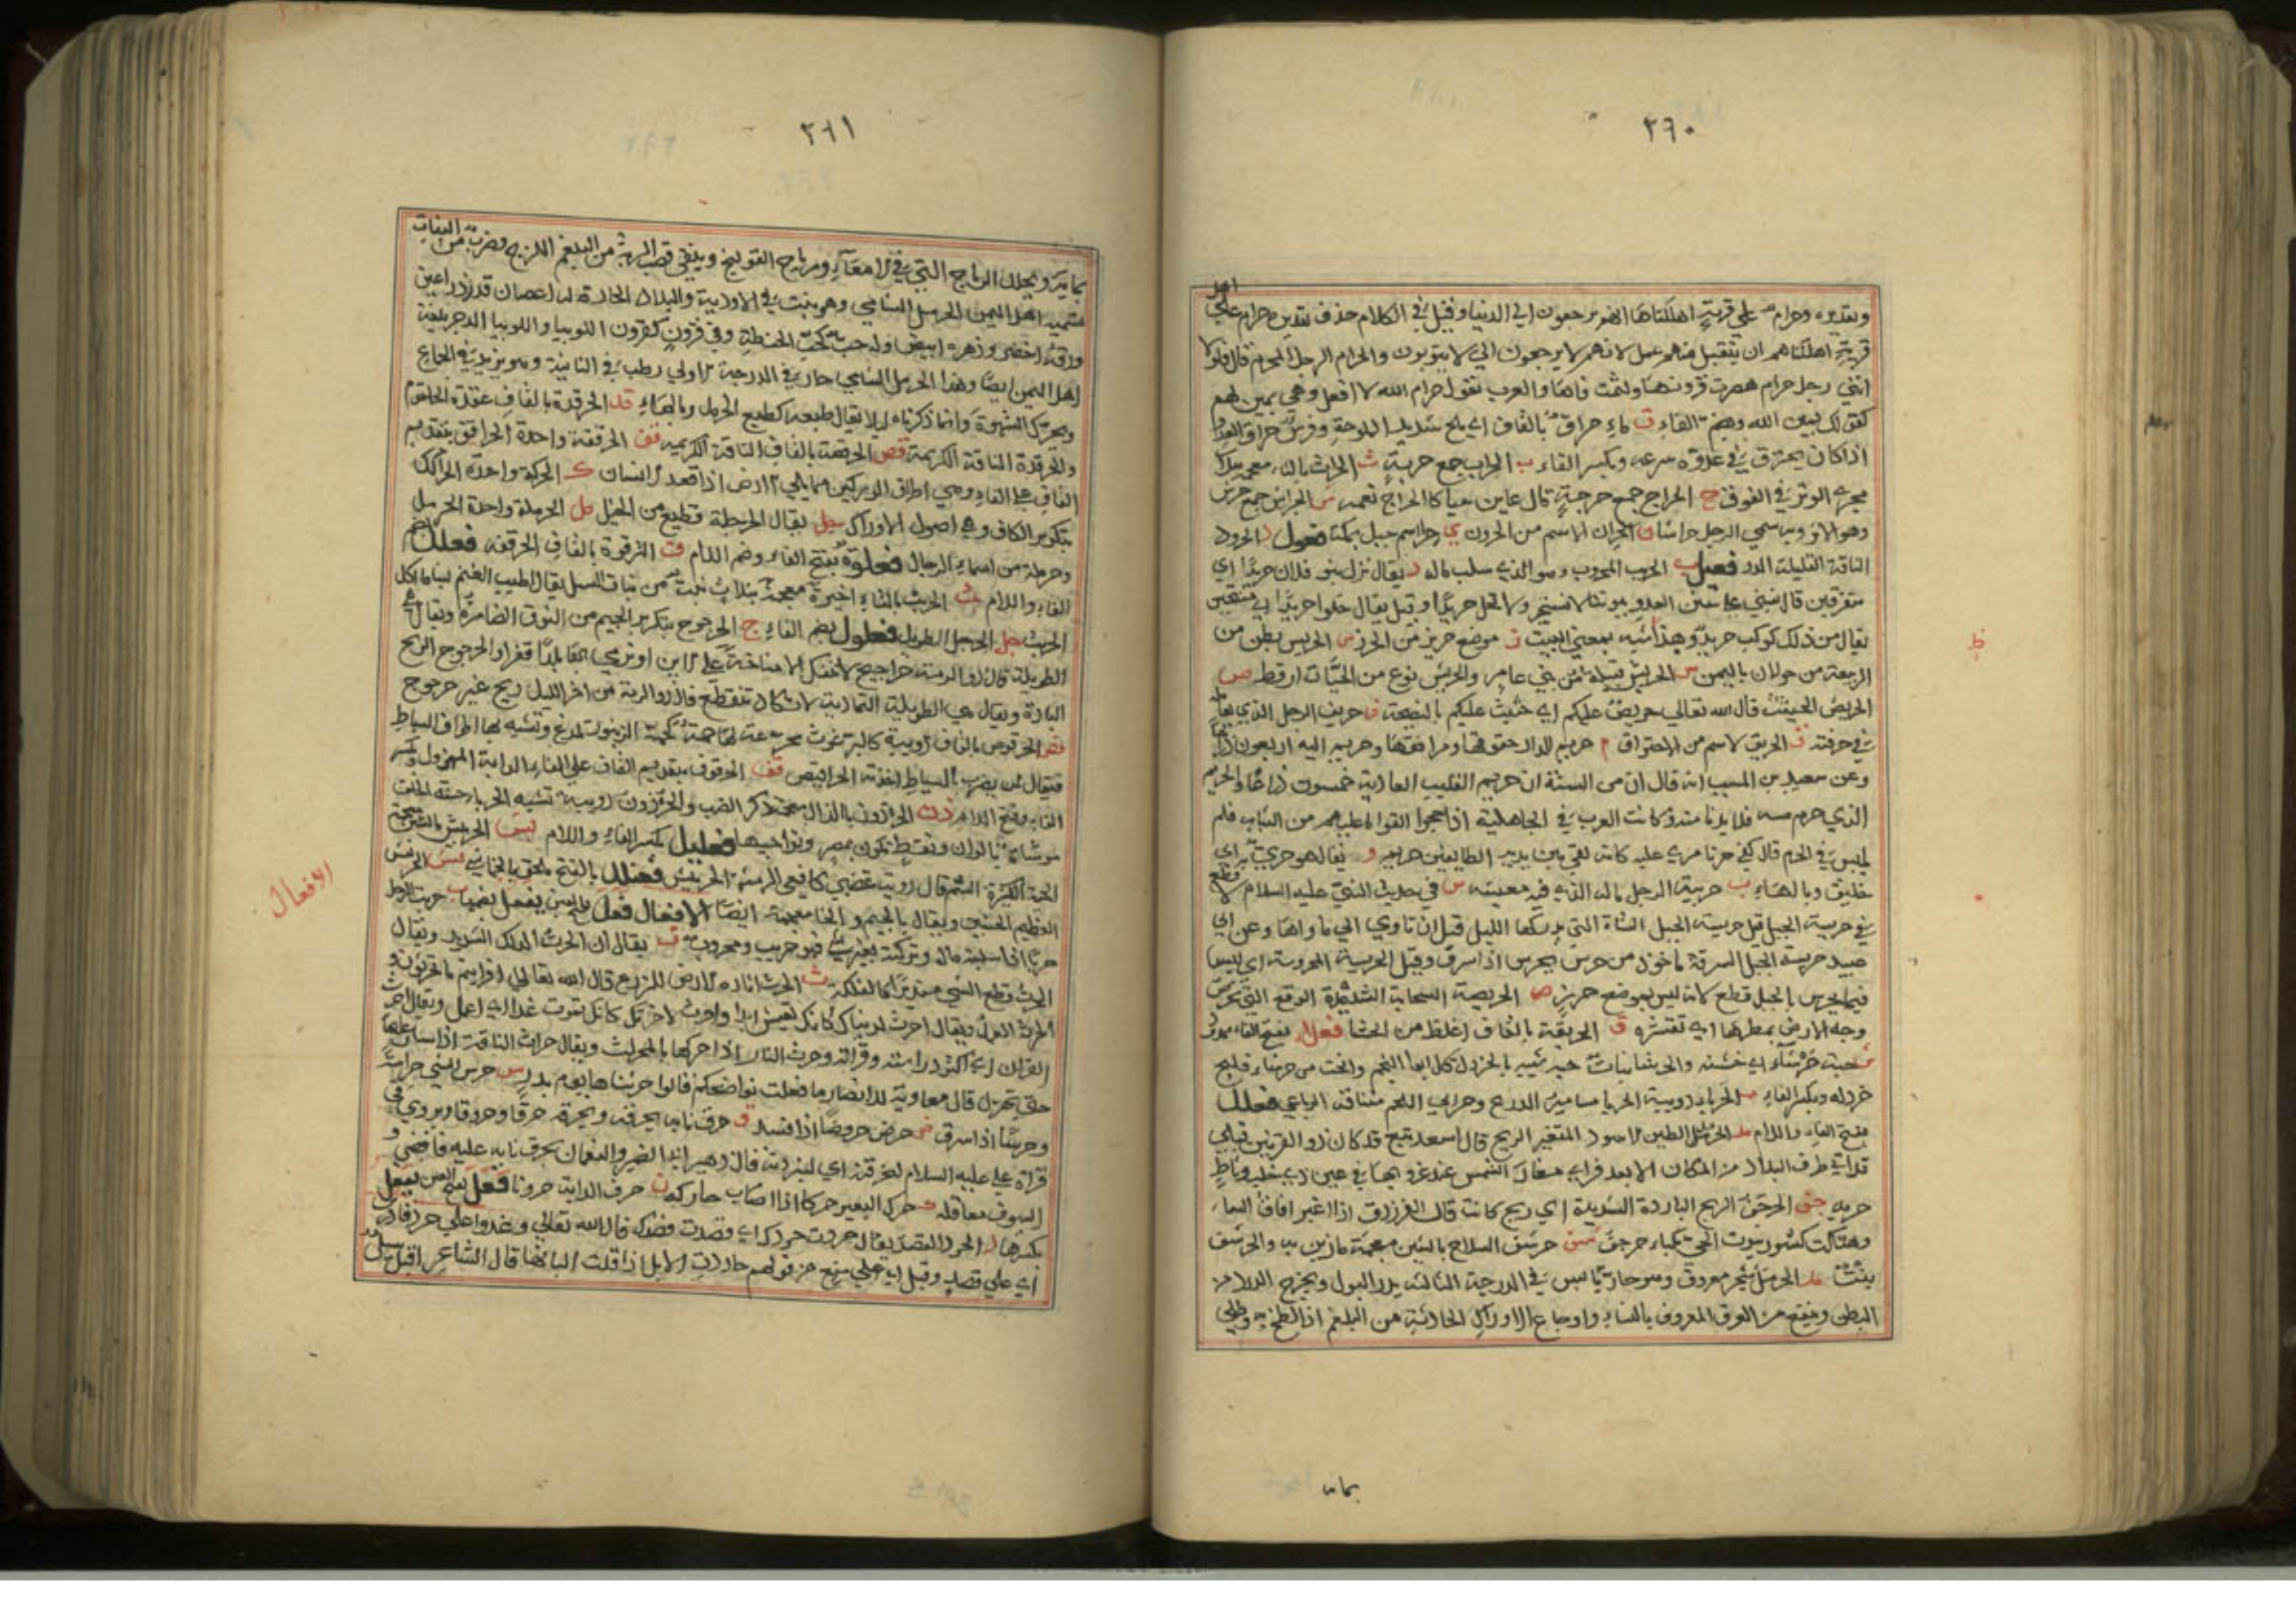 ٢٦٠
اهل
وتقديره وحرام على قرية اهلكناها انهم يرجعون الي الدنيا وقيل في الكلام حذف تقديره حرام علي
قرية اهلكناهم ان يتقبل منهم عمل لانهم لا يرجعون اي لا يتوبون والحرام الرجل المحرم قال
انني رجل حرام هصرت قرونها ولثمت فاها والعرب تقول حرام الله لا افعل وهي يمين لهم
كقولك يمين الله وبضم الفاء ق ماء حراق بالقاف اي ملح شديد الملوحة وفرس حراق العدو
اذا كان يحترق في عدوه سرعه وبكسر الفاء ب الحراب جمع حربة ث الحراث بالثاء معجمه بثلاث
مجرى الوتر في الفوق ج الحراج جمع حرجة قال عاين حيا كالحراج نعمه س الحراس جمع حرس
وهو الاثر وبه سمي الرجل حراشا ن الحران الاسم من الحرون ي حرا اسم جبل بمكة فعول د الحرود
الناقة القليلة الدر فعيل ب الحريب المحروب وهو الذي سلب ماله د يقال نزل بنو فلان حريدا اي
متفرقين قال نبني على سنن العدو بيوتنا لا نستجير ولا نحل حريدا وقيل يقال حلوا حريدا اي متنحين
يقال من ذلك كوكب حريد وهذا اشبه بمعني البيت ز موضع حريز من الحرز س الحريس بطن من
الربيعة من خولان باليمن ش الحريش قبيلة من بني عامر والحريش نوع من الحيات ارقط ص
الحريص الحثيث قال الله تعالي حريص عليكم اي حثيث عليكم بالنصيحة ف حريف الرجل الذي يعامله
في حرفته ق الحريق الاسم من الاحتراق م حريم الدار حقوقها ومرافقها وحريم البير اربعون ذراعا
وعن سعيد بن المسيب انه قال ان من السنة ان حريم القليب العادية خمسون ذراعا والحريم
الذي حرم مسه فلا يدنا منه وكانت العرب في الجاهلية اذا حجوا القوا ما عليهم من الثياب فلم
يلبس في الحرم قال كفي حزنا مري عليه كانه لقي بين ايدي الطايفين حريم و يقال هو حري به اي
خليق وبالهاء ب حريبة الرجل ماله الذي فيه معيشته س في حديث النبي عليه السلام لا قطع
في حريسة الجبل قيل حريسة الجبل الشاة التي يدركها الليل قبل ان تاوي الي ماواها وعن ابي
عبيد حريسة الجبل السرقة ماخوذ من حرس يحرس اذا سرق وقيل الحريسة المحروسة اي ليس
فيما يحرس بالجبل قطع لانه ليس بموضع حريز ص الحريصة السحابة الشديدة الوقع التي تحرص
وجه الارض بمطرها اي تقشره ق الحريقة بالقاف اغلظ من الحسا فعلاء بفتح الفاء ممدود
ش حية حرشاء اي خشنه والحرشا نبات حبه شبيه بالخردل
خردله وبكسر الفاء ب الحرباء دويبة الحربا مسامير الدرع وحرابي اللحم متناقه الرباعي فعلل
بفتح الفاء واللام مد الحرمد الطين الاسود المتغير الريح قال اسعد تبع قد كان ذو القرنين قبلي
قد اتي طرف البلاد من المكان الابعد فراي مغار الشمس عند غروبها في عين ذي خلب وثاط
حرمد جف الحرجف الريح الباردة الشديدة اي ريح كانت قال الفرزدق اذا اغبر افاق السماء
وهتكت كسور بيوت الحي نكباء حرجف شف حرشف السلاح بالشين معجمة ما زين به والحرشف
نبت مل الحرمل شجر معروف وهو حار يابس في الدرجة الثالثه يدر البول ويخرج الدود من
البطن وينفع من العرق المعروف بالنساء واوجاع الاوراك الحادثة من البلغم اذا لطخ به وطلي
بمايه
ظ
٢٦١
بمايه ويحلل الرياح التي في الامعاء ورياح القولنج وينقي قصب الرية من البلغم اللزج وضرب من النبات
تسميه اهل اليمن الحرمل الشامي وهو ينبت في الاودية والبلاد الحارة له اغصان قدر ذراعين
ورقه اخضر وزهره ابيض وله حب كحب الحنطة وفي قرون كقرون اللوبيا واللوبيا الدجر بلغة
اهل اليمن ايضا وهذا الحرمل الشامي حار في الدرجة الاولي رطب في الثانية وهو يزيد في الجماع
ويحرك الشهوة وانما ذكرناه ليلا يقال طبعه كطبع الحرمل وبالهاء قد الحرقدة بالقاف عقدة الحلقوم
والحرقدة الناقة الكريمة قص الحرقصة بالقاف الناقة الكريمه قف الحرقفة واحدة الحراقف بتقديم
القاف على الفاء وهي اطراف الوركين مما يلي الارض اذا قعد الانسان ك الحركة واحدة الحراكك
بتكرير الكاف وهي اصول الاوراك جل يقال الحرجلة قطيع من الخيل مل الحرملة واحدة الحرمل
وحرملة من اسماء الرجال فعلوة بفتح الفاء وضم اللام ق الحرقوة بالقاف الحرقفه فعلل بضم
الفاء واللام بث الحربث بالثاء اخيرة معجمة بثلاث نبت من نبات السهل يقال اطيب الغنم لبنا ما اكل
الحربث جل الحرجل الطويل فعلول بضم الفاء ج الحرجوج بتكرير الجيم من النوق الضامرة ويقال هي
الطويلة قال ذو الرمة حراجيج لا تنفك الا مناخة على الاين او نرمي بها بلدا قفرا والحرجوج الريح
الباردة ويقال هي الطويلة التمادية لا تكاد تنقطع قال ذو الرمة من اخر الليل ريح غير حرجوج
قص الحرقوص بالقاف دويبة كالبرغوث مجزعة لها حمة كحمة الزنبور تلدغ وتشبه بها اطراف السياط
فيقال لمن يضرب بالسياط اخذته الحراقيص قف الحرقوف بتقديم القاف على الفاء الدابة المهزول وبكسر
الفاء وفتح اللام ذن الحرذون بالذال معجمة ذكر الضب والحرذون دويبة تشبه الحرباء حسنة الخلق
موشاة بالوان ونقط تكون بمصر ونواحيها فعليل بكسر الفاء واللام بش الحربيش بالشين معجمة
الحية الكثيرة السم قال روبة غضبي كافعي الرمثة الحربيش فعنلل بالفتح ملحق بالخماسي نش الحرنفش
العظيم الجنبين ويقال بالجيم والخا معجمة ايضا الافعال فعل بفتح العين يفعل بضمها ب حرب الرجل
حربا اذا سلبه ماله وتركه بغير شي فهو حريب ومحروب ت يقال ان الحرت الدلك الشديد ويقال
الحرت قطع الشي مستديرا كالفلكة ث الحرث اثارة الارض للزرع قال الله تعالي افرايتم ما تحرثون و
الحرث العمل ويقال احرث لدنياك كانك تعيش ابدا واحرث لاخرتك كانك تموت غدا اي اعمل ويقال احرث
القران اي اكثر دراسته وقراته وحرث النار اذا حركها بالمحراث ويقال حرث الناقة اذا سار عليها
حتي تهزل قال معاوية للانصار ما فعلت نواضحكم قالوا حرثناها يوم بدر س حرس الشي حراسة
وحرسا اذا سرق ض حرض حروضا اذا فسد ق حرق نابه يحرقه ويحرقه حرقا وحروقا ويروي في
قراة علي عليه السلام لنحرقنه اي لنبردنه قال زهير ابي الضيم والنعمان يحرق نابه عليه فافضي و
السيوف معاقله ك حرك البعير حركا اذا اصاب حاركه ن حرن الدابة حرونا فعل بفتح العين يفعل
بكسرها د الحرد القصد يقال حردت حردك اي قصدت قصدك قال الله تعالي وغدوا علي حرد قادرين
اي علي قصد وقيل اي علي منع من قولهم حاردت الابل اذا قلت البانها قال الشاعر اقبل سيل
الافعال